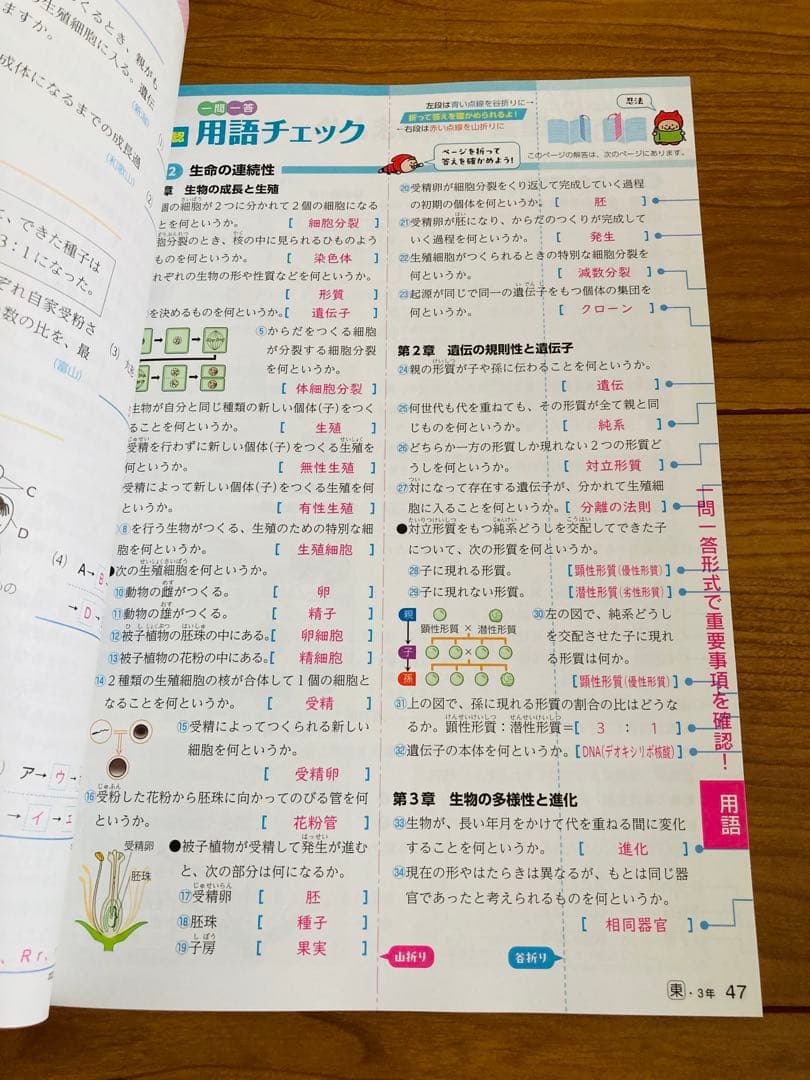 くるとき、親がも
生殖細胞に入る。遺伝
ますか。
成体になるまでの成長過
(和歌山)
(1)
(2)
、できた種子は
3:1になった。
ぞれ自家受粉さ
数の比を、最
(3)
(富山)
C
D
(4) A→
→D→
ア→ウ
→イ→エ
Rr
一問一答
用語チェック
左段は青い点線を谷折りに→
折って答えを確かめられるよ!
←右段は赤い点線を山折りに
忍法
ページを折って
答えを確かめよう!
このページの解答は、次のページにあります。
2 生命の連続性
章 生物の成長と生殖
個の細胞が2つに分かれて2個の細胞になる
ことを何というか。 [ 細胞分裂 ]
胞分裂のとき、核の中に見られるひものよう
ものを何というか。 [ 染色体 ]
れぞれの生物の形や性質などを何というか。
[ 形質 ]
を決めるものを何というか。[ 遺伝子 ]
⑤からだをつくる細胞
が分裂する細胞分裂
を何というか。
[ 体細胞分裂 ]
生物が自分と同じ種類の新しい個体(子)をつく
ることを何というか。 [ 生殖 ]
受精を行わずに新しい個体(子)をつくる生殖を
何というか。 [ 無性生殖 ]
受精によって新しい個体(子)をつくる生殖を何
というか。 [ 有性生殖 ]
⑧を行う生物がつくる、生殖のための特別な細
胞を何というか。 [ 生殖細胞 ]
●次の生殖細胞を何というか。
⑩動物の雌がつくる。 [ 卵 ]
⑪動物の雄がつくる。 [ 精子 ]
⑫被子植物の胚珠の中にある。[ 卵細胞 ]
⑬被子植物の花粉の中にある。[ 精細胞 ]
⑭2種類の生殖細胞の核が合体して1個の細胞と
なることを何というか。 [ 受精 ]
⑮受精によってつくられる新しい
細胞を何というか。
[ 受精卵 ]
⑯受粉した花粉から胚珠に向かってのびる管を何
というか。 [ 花粉管 ]
受精卵
胚珠
●被子植物が受精して発生が進む
と、次の部分は何になるか。
⑰受精卵 [ 胚 ]
⑱胚珠 [ 種子 ]
⑲子房 [ 果実 ]
⑳受精卵が細胞分裂をくり返して完成していく過程
の初期の個体を何というか。[ 胚 ]
㉑受精卵が胚になり、からだのつくりが完成して
いく過程を何というか。 [ 発生 ]
㉒生殖細胞がつくられるときの特別な細胞分裂
を何というか。 [ 減数分裂 ]
㉓起源が同じで同一の遺伝子をもつ個体の集団を
何というか。 [ クローン ]
第2章 遺伝の規則性と遺伝子
㉔親の形質が子や孫に伝わることを何というか。
[ 遺伝 ]
㉕何世代も代を重ねても、その形質が全て親と同
じものを何というか。 [ 純系 ]
㉖どちらか一方の形質しか現れない2つの形質ど
うしを何というか。 [ 対立形質 ]
㉗対になって存在する遺伝子が、分かれて生殖細
胞に入ることを何というか。[ 分離の法則 ]
●対立形質をもつ純系どうしを交配してできた子
について、次の形質を何というか。
㉘子に現れる形質。 [顕性形質(優性形質)]
㉙子に現れない形質。 [潜性形質(劣性形質)]
親
顕性形質 × 潜性形質
子
×
孫
㉚左の図で、純系どうし
を交配させた子に現れ
る形質は何か。
[顕性形質(優性形質)]
㉛上の図で、孫に現れる形質の割合の比はどうな
るか。顕性形質:潜性形質=[ 3 : 1 ]
㉜遺伝子の本体を何というか。[DNA(デオキシリボ核酸)]
第3章 生物の多様性と進化
㉝生物が、長い年月をかけて代を重ねる間に変化
することを何というか。 [ 進化 ]
㉞現在の形やはたらきは異なるが、もとは同じ器
官であったと考えられるものを何というか。
[ 相同器官 ]
山折り
谷折り
一問一答形式で重要事項を確認!
用語
東・3年 47